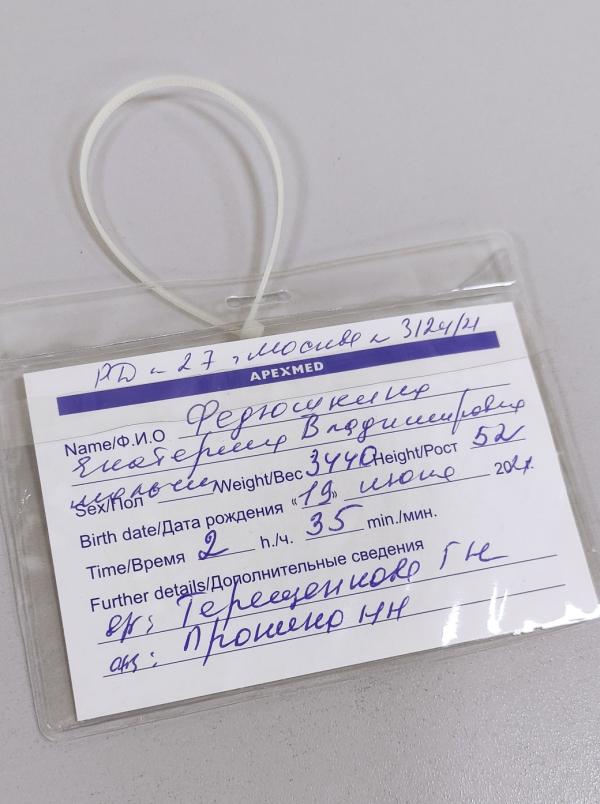 РД N 27 г Москва N 3124/4
APEXMED
Name/Ф.И.О Федюшкина
Екатерина Владимировна
Sex/Пол мальчик Weight/Вес 3440 Height/Рост 52
Birth date/Дата рождения «19» июня 2021.
Time/Время 2 h./ч. 35 min./мин.
Further details/Дополнительные сведения
вр: Терещенкова Г Н
ак: Пронина НН